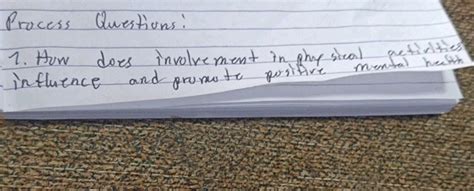 Process Questions:
1. How does involvement in physical activities
influence and promote positive mental health